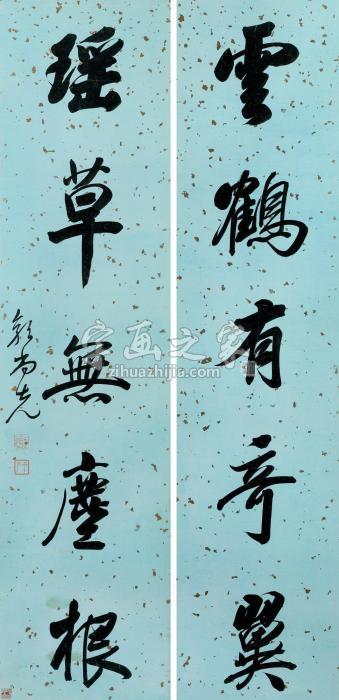 雲鶴有奇翼
瑶草無塵根
郭尚先
字画之家
zihuazhijia.com